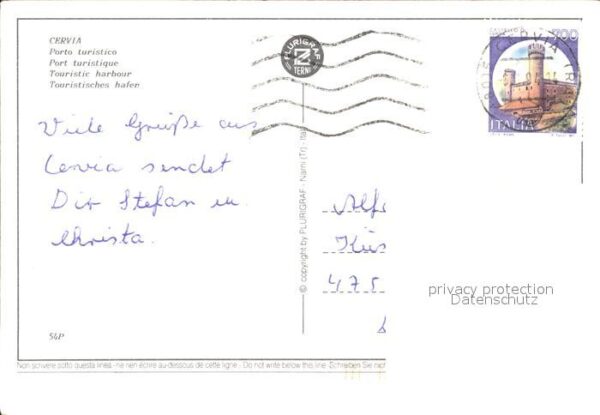 CERVIA
Porto turistico
Port turistique
Touristic harbour
Touristisches hafen
PLURIGRAF
TERNI
700
ITALIA
Viele Grüße aus
Cervia sendet
Dir Stefan u.
Christa.
© copyright by PLURIGRAF - Narni (Tr) - Ita
Alfo
Küs
475
privacy protection
Datenschutz
54P
Non scrivere sotto questa linea - ne rien écrire au-dessous de cette ligne - Do not write below this line - Schreiben Sie nich